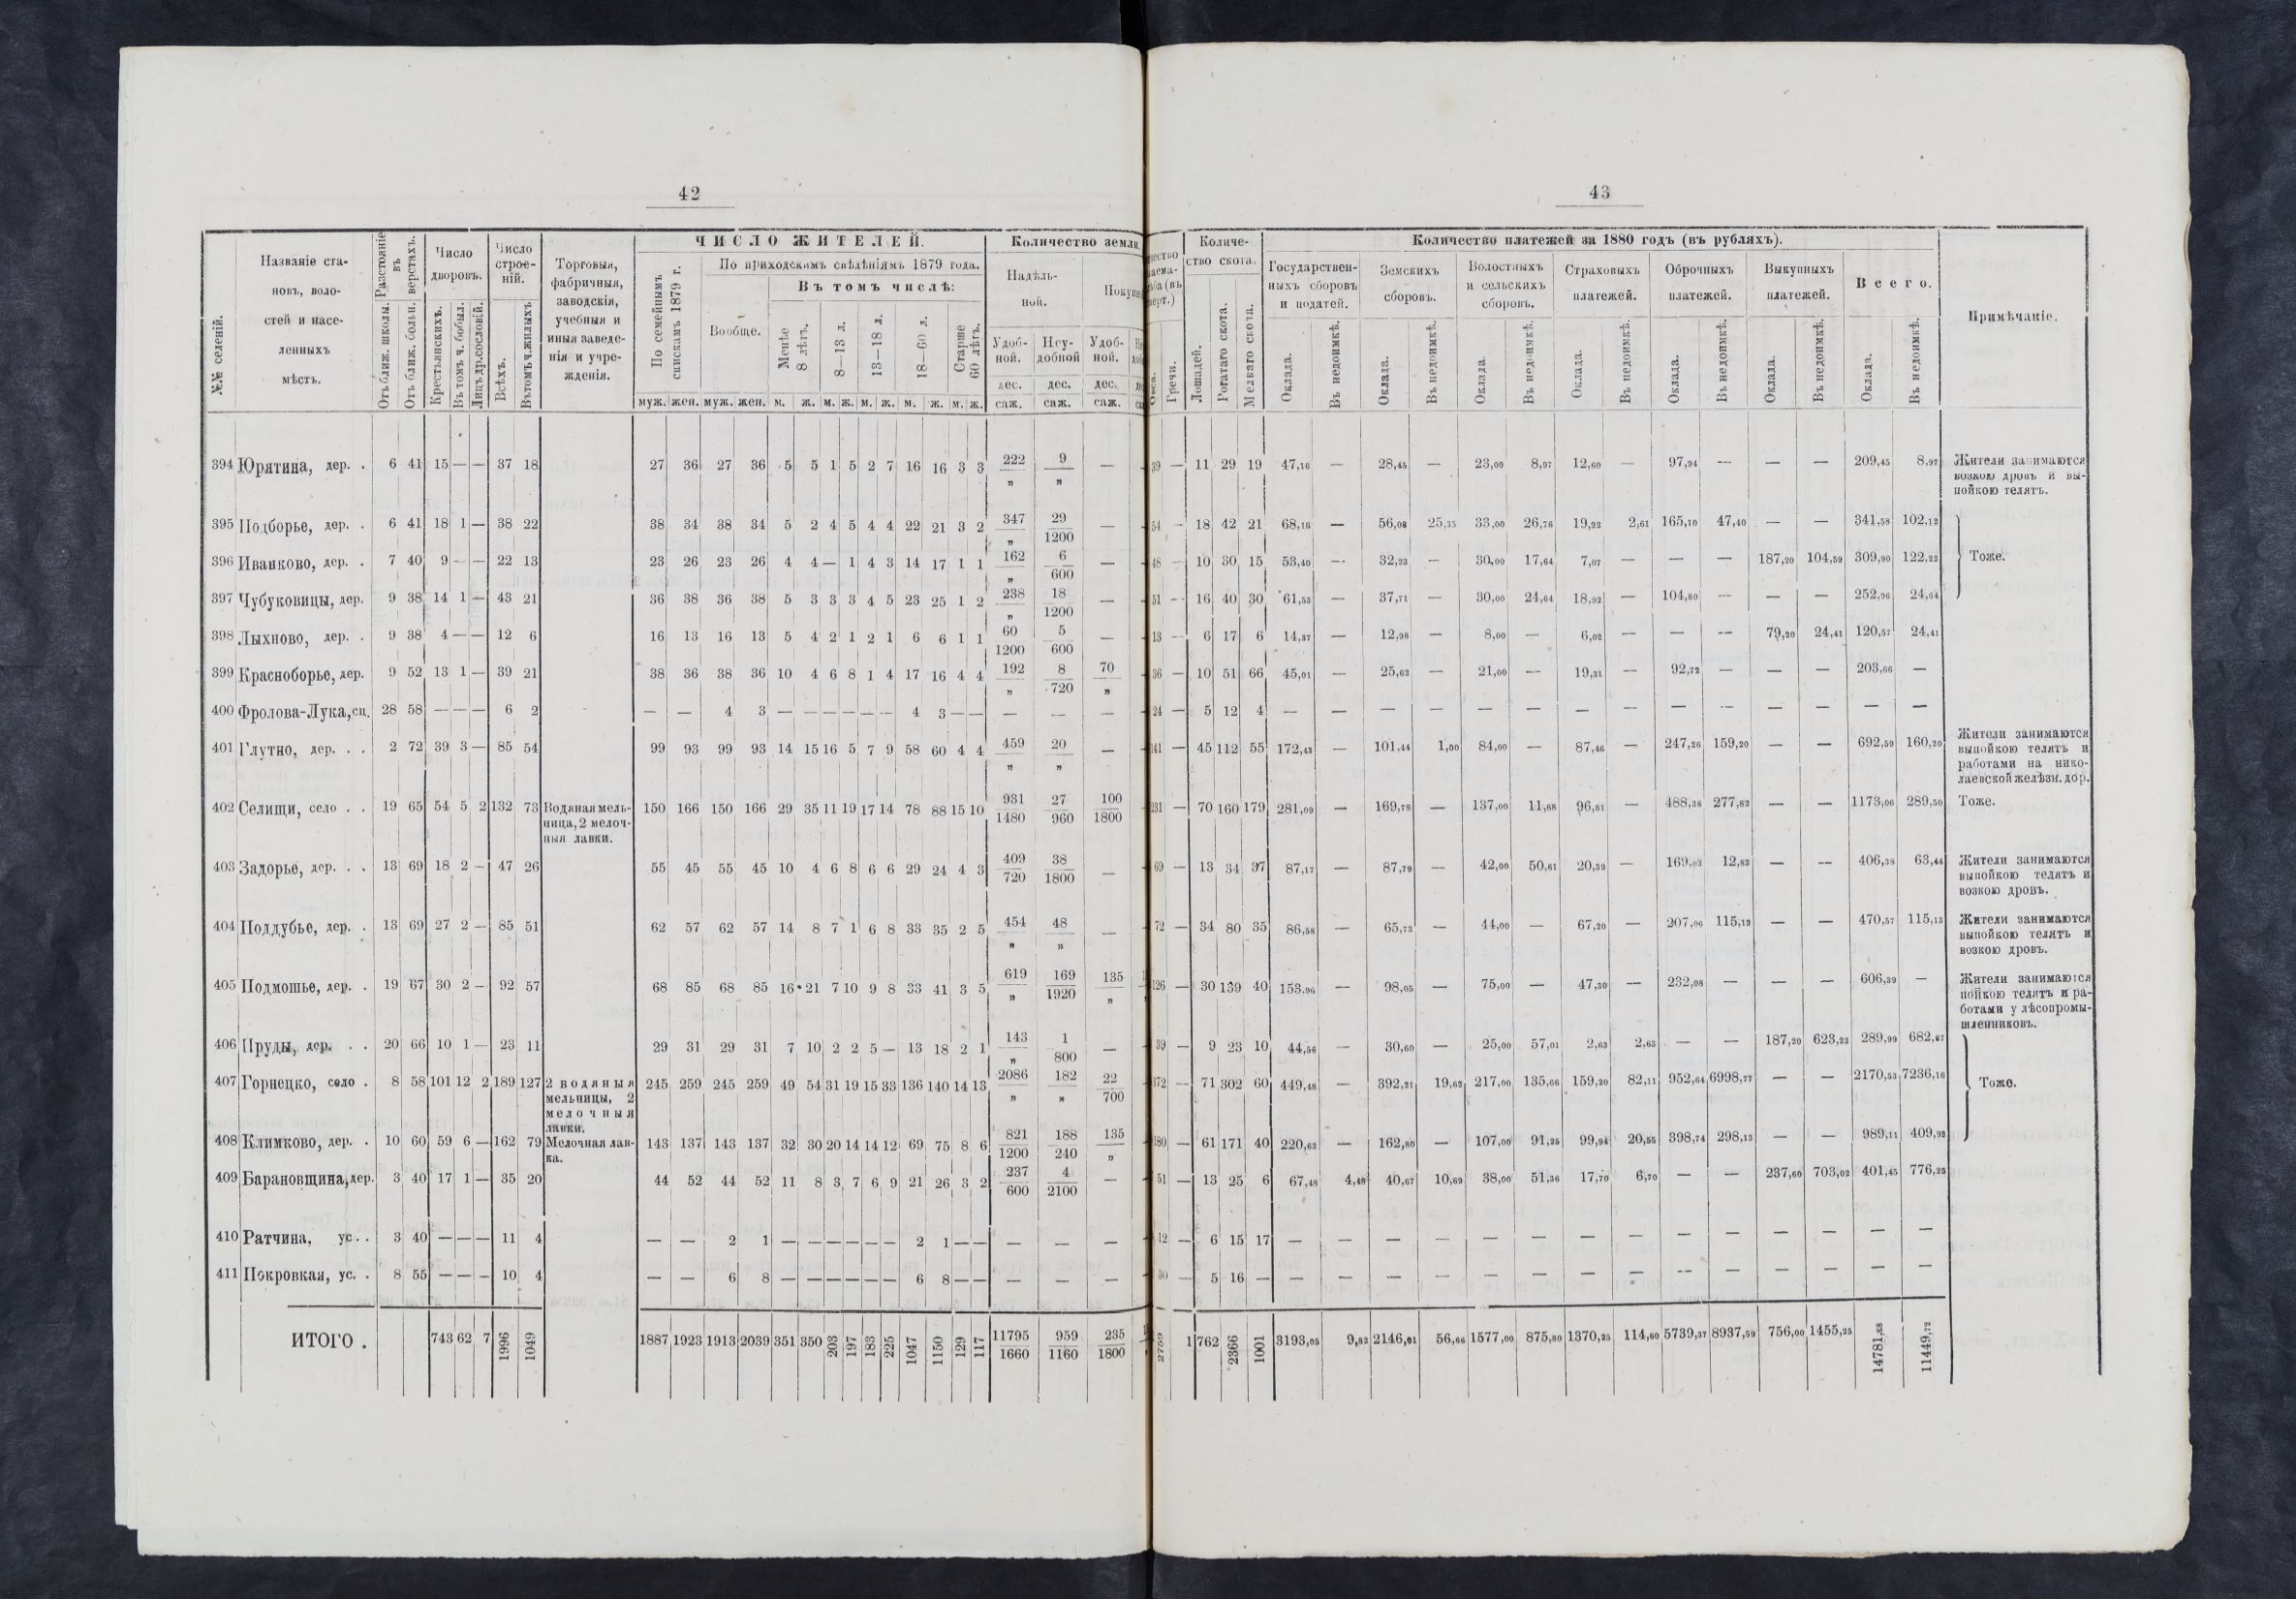 42
№№ селеній.
Названіе становъ, волостей и населенныхъ мѣстъ.
Разстояніе въ верстахъ.
Отъ ближ. школы.
Отъ ближ. больн.
Число дворовъ.
Крестьянскихъ.
Въ томъ ч. бобыл.
Лицъ др. сословій.
Число строеній.
Всѣхъ.
Въ томъ ч. жилыхъ
Торговыя, фабричныя, заводскія, учебныя и иныя заведенія и учрежденія.
ЧИСЛО ЖИТЕЛЕЙ.
По семейнымъ спискамъ 1879 г.
По приходскимъ свѣдѣніямъ 1879 года.
Вообще.
Въ томъ числѣ:
Менѣе 8 лѣтъ.
8—13 л.
13—18 л.
18—60 л.
Старше 60 лѣтъ.
муж. жен. муж. жен. м. ж. м. ж. м. ж. м. ж. м. ж.
Количество земли
Надѣльной.
Удобной. Неудобной Удобной.
дес. дес. дес.
саж. саж. саж.
394 Юрятина, дер. . 6 41 15 — — 37 18 27 36 27 36 5 5 1 5 2 7 16 16 3 3 222/„ 9/„ —
395 Подборье, дер. . 6 41 18 1 — 38 22 38 34 38 34 5 2 4 5 4 4 22 21 3 2 347/„ 29/1200 —
396 Иванково, дер. . 7 40 9 — — 22 13 23 26 23 26 4 4 — 1 4 3 14 17 1 1 162/„ 6/600 —
397 Чубуковицы, дер. 9 38 14 1 — 43 21 36 38 36 38 5 3 3 3 4 5 23 25 1 2 238/„ 18/1200 —
398 Лыхново, дер. . 9 38 4 — — 12 6 16 13 16 13 5 4 2 1 2 1 6 6 1 1 60/1200 5/600 —
399 Красноборье, дер. 9 52 13 1 — 39 21 38 36 38 36 10 4 6 8 1 4 17 16 4 4 192/„ 8/720 70/„
400 Фролова-Лука, сц. 28 58 — — — 6 2 — — 4 3 — — — — — — 4 3 — — — — —
401 Глутно, дер. . . 2 72 39 3 — 85 54 99 93 99 93 14 15 16 5 7 9 58 60 4 4 459/„ 20/„ —
402 Селищи, село . . 19 65 54 5 2 132 73 Водяная мельница, 2 мелочныя лавки. 150 166 150 166 29 35 11 19 17 14 78 88 15 10 931/1480 27/960 100/1800
403 Задорье, дер. . . 13 69 18 2 — 47 26 55 45 55 45 10 4 6 8 6 6 29 24 4 3 409/720 38/1800 —
404 Поддубье, дер. . 13 69 27 2 — 85 51 62 57 62 57 14 8 7 1 6 8 33 35 2 5 454/„ 48/„ —
405 Подмошье, дер. . 19 67 30 2 — 92 57 68 85 68 85 16 21 7 10 9 8 33 41 3 5 619/„ 169/1920 135/„
406 Пруды, дер. . . 20 66 10 1 — 23 11 29 31 29 31 7 10 2 2 5 — 13 18 2 1 143/„ 1/800 —
407 Горнецко, село . 8 58 101 12 2 189 127 2 водяныя мельницы, 2 мелочныя лавки. 245 259 245 259 49 54 31 19 15 33 136 140 14 13 2086/„ 182/„ 22/700
408 Климково, дер. . 10 60 59 6 — 162 79 Мелочная лавка. 143 137 143 137 32 30 20 14 14 12 69 75 8 6 821/1200 188/240 135/„
409 Барановщина, дер. 3 40 17 1 — 35 20 44 52 44 52 11 8 3 7 6 9 21 26 3 2 237/600 4/2100 —
410 Ратчина, ус. . 3 40 — — — 11 4 — — 2 1 — — — — — — 2 1 — — — — —
411 Покровкая, ус. . 8 55 — — — 10 4 — — 6 8 — — — — — — 6 8 — — — — —
ИТОГО . 743 62 7 1996 1049 1887 1923 1913 2039 351 350 203 197 183 225 1047 1150 129 117 11795/1660 959/1160 235/1800
43
Гречи.
Количество скота.
Лошадей.
Рогатаго скота.
Мелкаго скота.
Количество платежей за 1880 годъ (въ рубляхъ).
Государственныхъ сборовъ и податей.
Земскихъ сборовъ.
Волостныхъ и сельскихъ сборовъ.
Страховыхъ платежей.
Оброчныхъ платежей.
Выкупныхъ платежей.
Всего.
Оклада. Въ недоимкѣ. Оклада. Въ недоимкѣ. Оклада. Въ недоимкѣ. Оклада. Въ недоимкѣ. Оклада. Въ недоимкѣ. Оклада. Въ недоимкѣ. Оклада. Въ недоимкѣ.
Примѣчаніе.
39 — 11 29 19 47,16 — 28,45 — 23,00 8,97 12,60 — 97,94 — — — 209,45 8,97 Жители занимаются возкою дровъ и выпойкою телятъ.
54 — 18 42 21 68,18 — 56,08 25,35 33,00 26,76 19,22 2,61 165,10 47,40 — — 341,58 102,12
48 — 10 30 15 53,40 — 32,23 — 30,00 17,64 7,07 — — — 187,20 104,59 309,90 122,23 Тоже.
51 — 16 40 30 61,53 — 37,71 — 30,00 24,64 18,92 — 104,80 — — — 252,96 24,64
13 — 6 17 6 14,37 — 12,98 — 8,00 — 6,02 — — — 79,20 24,41 120,57 24,41
36 — 10 51 66 45,01 — 25,62 — 21,00 — 19,31 — 92,72 — — — 203,66 —
24 — 5 12 4 — — — — — — — — — — — — — —
141 — 45 112 55 172,43 — 101,44 1,00 84,00 — 87,46 — 247,26 159,20 — — 692,59 160,20 Жители занимаются выпойкою телятъ и работами на николаевской желѣзн. дор.
231 — 70 160 179 281,09 — 169,78 — 137,00 11,68 96,81 — 488,38 277,82 — — 1173,06 289,50 Тоже.
69 — 13 34 37 87,17 — 87,79 — 42,00 50,61 20,39 — 169,03 12,83 — — 406,38 63,44 Жители занимаются выпойкою телятъ и возкою дровъ.
72 — 34 80 35 86,58 — 65,73 — 44,00 — 67,20 — 207,06 115,13 — — 470,57 115,13 Жители занимаются выпойкою телятъ и возкою дровъ.
126 — 30 139 40 153,96 — 98,05 — 75,00 — 47,30 — 232,08 — — — 606,39 — Жители занимаются пойкою телятъ и работами у лѣсопромышленниковъ.
39 — 9 23 10 44,56 — 30,60 — 25,00 57,01 2,63 2,63 — — 187,20 623,23 289,99 682,87
372 — 71 302 60 449,48 — 392,21 19,62 217,00 135,66 159,20 82,11 952,64 6998,77 — — 2170,53 7236,16 Тоже.
180 — 61 171 40 220,63 — 162,80 — 107,00 91,25 99,94 20,55 398,74 298,13 — — 989,11 409,93
51 — 13 25 6 67,48 4,48 40,67 10,69 38,00 51,36 17,70 6,70 — — 237,60 703,02 401,45 776,25
12 — 6 15 17 — — — — — — — — — — — — — —
30 — 5 16 — — — — — — — — — — — — — — —
2769 1 762 2366 1001 3193,05 9,82 2146,01 56,66 1577,00 875,80 1370,25 114,60 5739,37 8937,59 756,00 1455,25 14781,68 11449,72